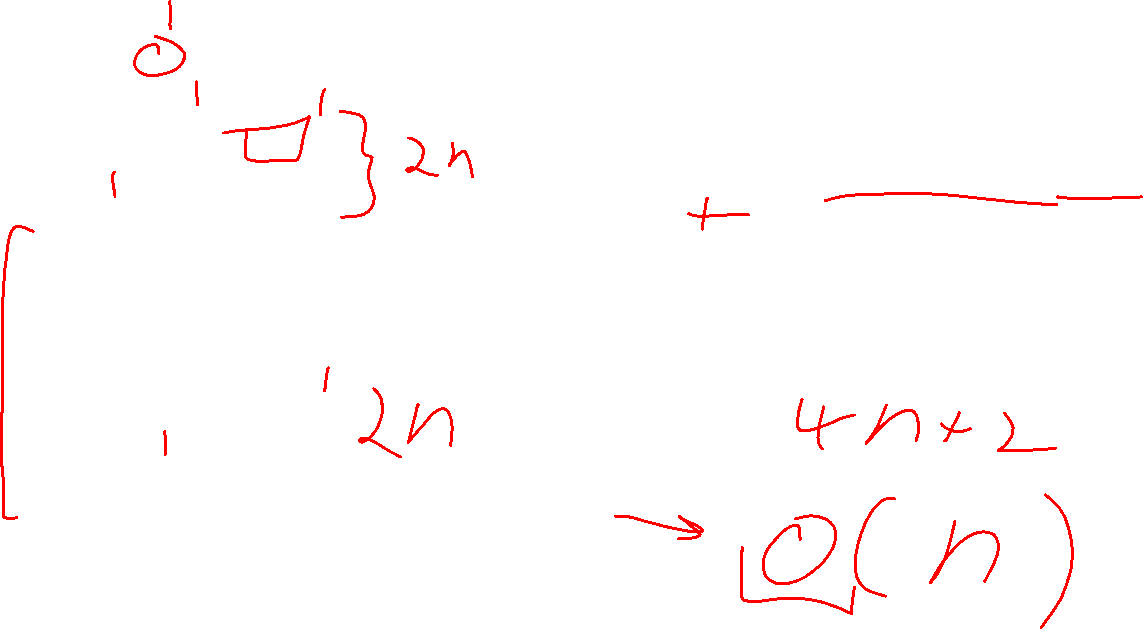 1
1
1
} 2n
1
+
1 2n
1
4n+2
→ O(n)